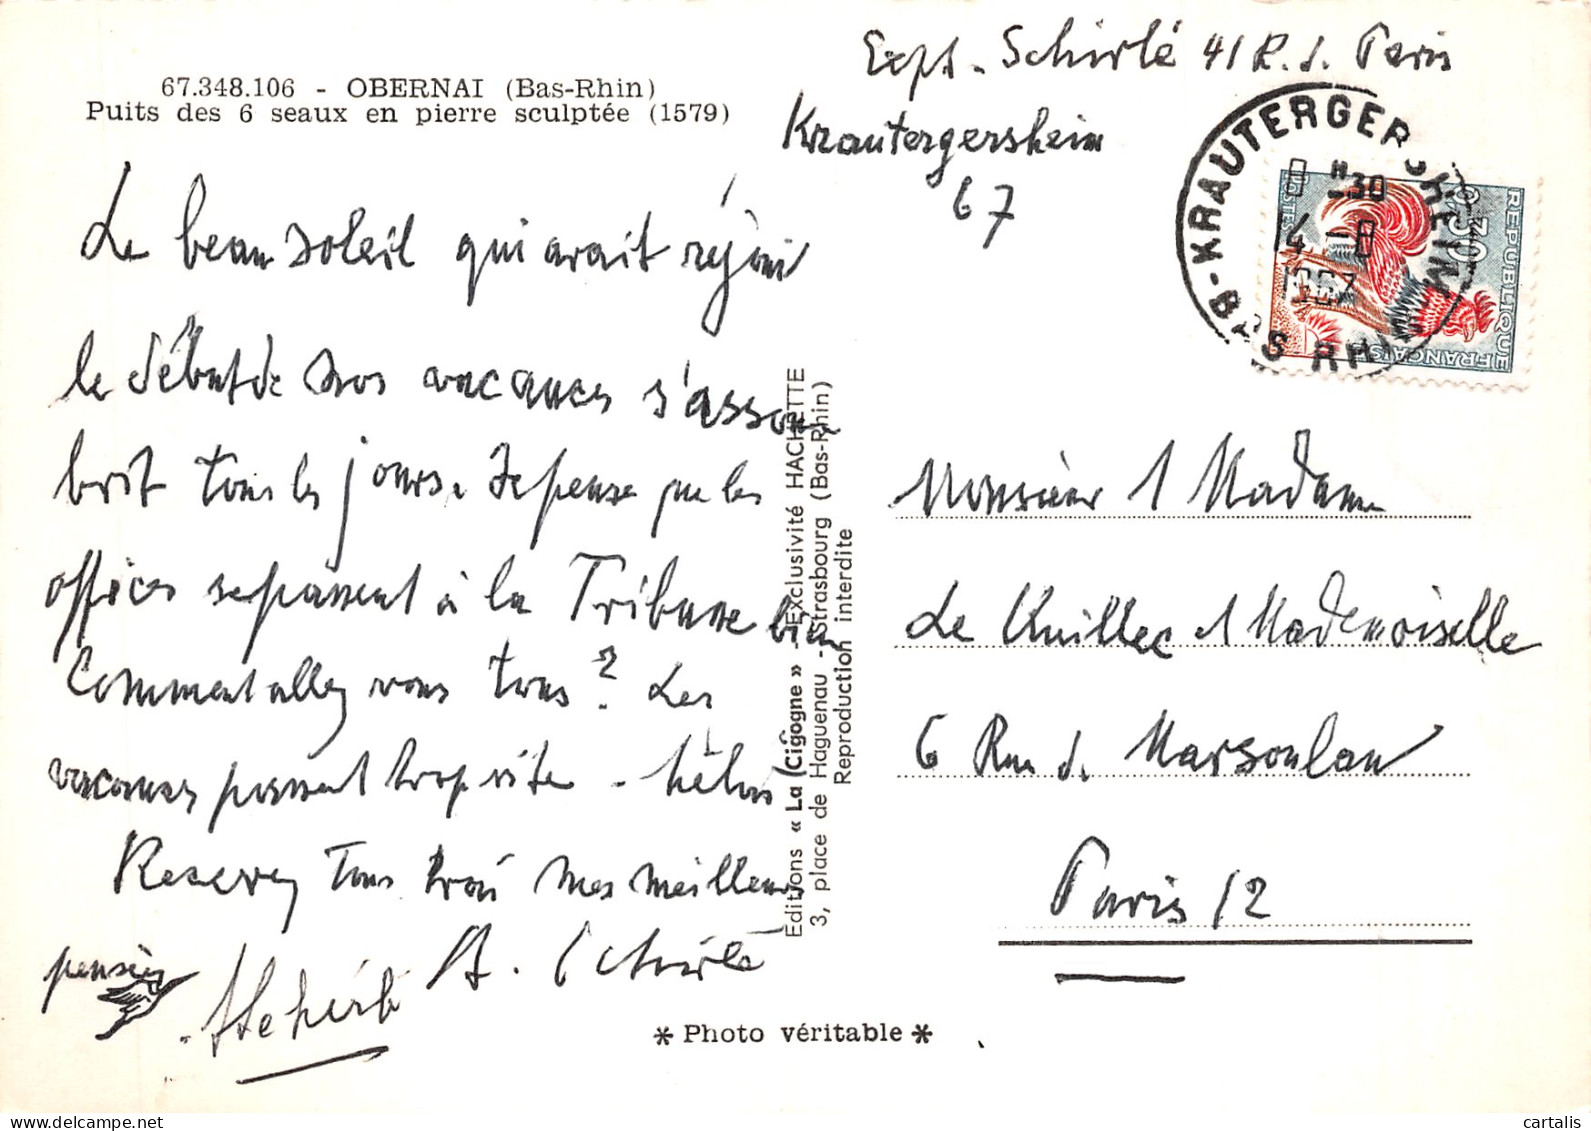 67.348.106 - OBERNAI (Bas-Rhin)
Puits des 6 seaux en pierre sculptée (1579)
Le beau soleil qui avait réjoui
le début de nos vacances s'assom
brit tous les jours. Je pense que les
offices se passent à la Tribune bien
Comment allez vous tous? Les
vacances passent trop vite - hélas
Recevez tous trois mes meilleures
pensées
A. Schirlé
Editions « La Cigogne » - Exclusivité HACHETTE
3, place de Haguenau - Strasbourg (Bas-Rhin)
Reproduction interdite
* Photo véritable *
Expt. Schirlé 41 R. d. Paris
Krautergersheim
67
KRAUTERGERSHEIM
B-BAS RHIN
8 H 30
4 - 8
1967
0,30
POSTES
REPUBLIQUE FRANÇAISE
Monsieur & Madame
Le Cuillec & Mademoiselle
6 Rue de Marsoulan
Paris 12
cartalis